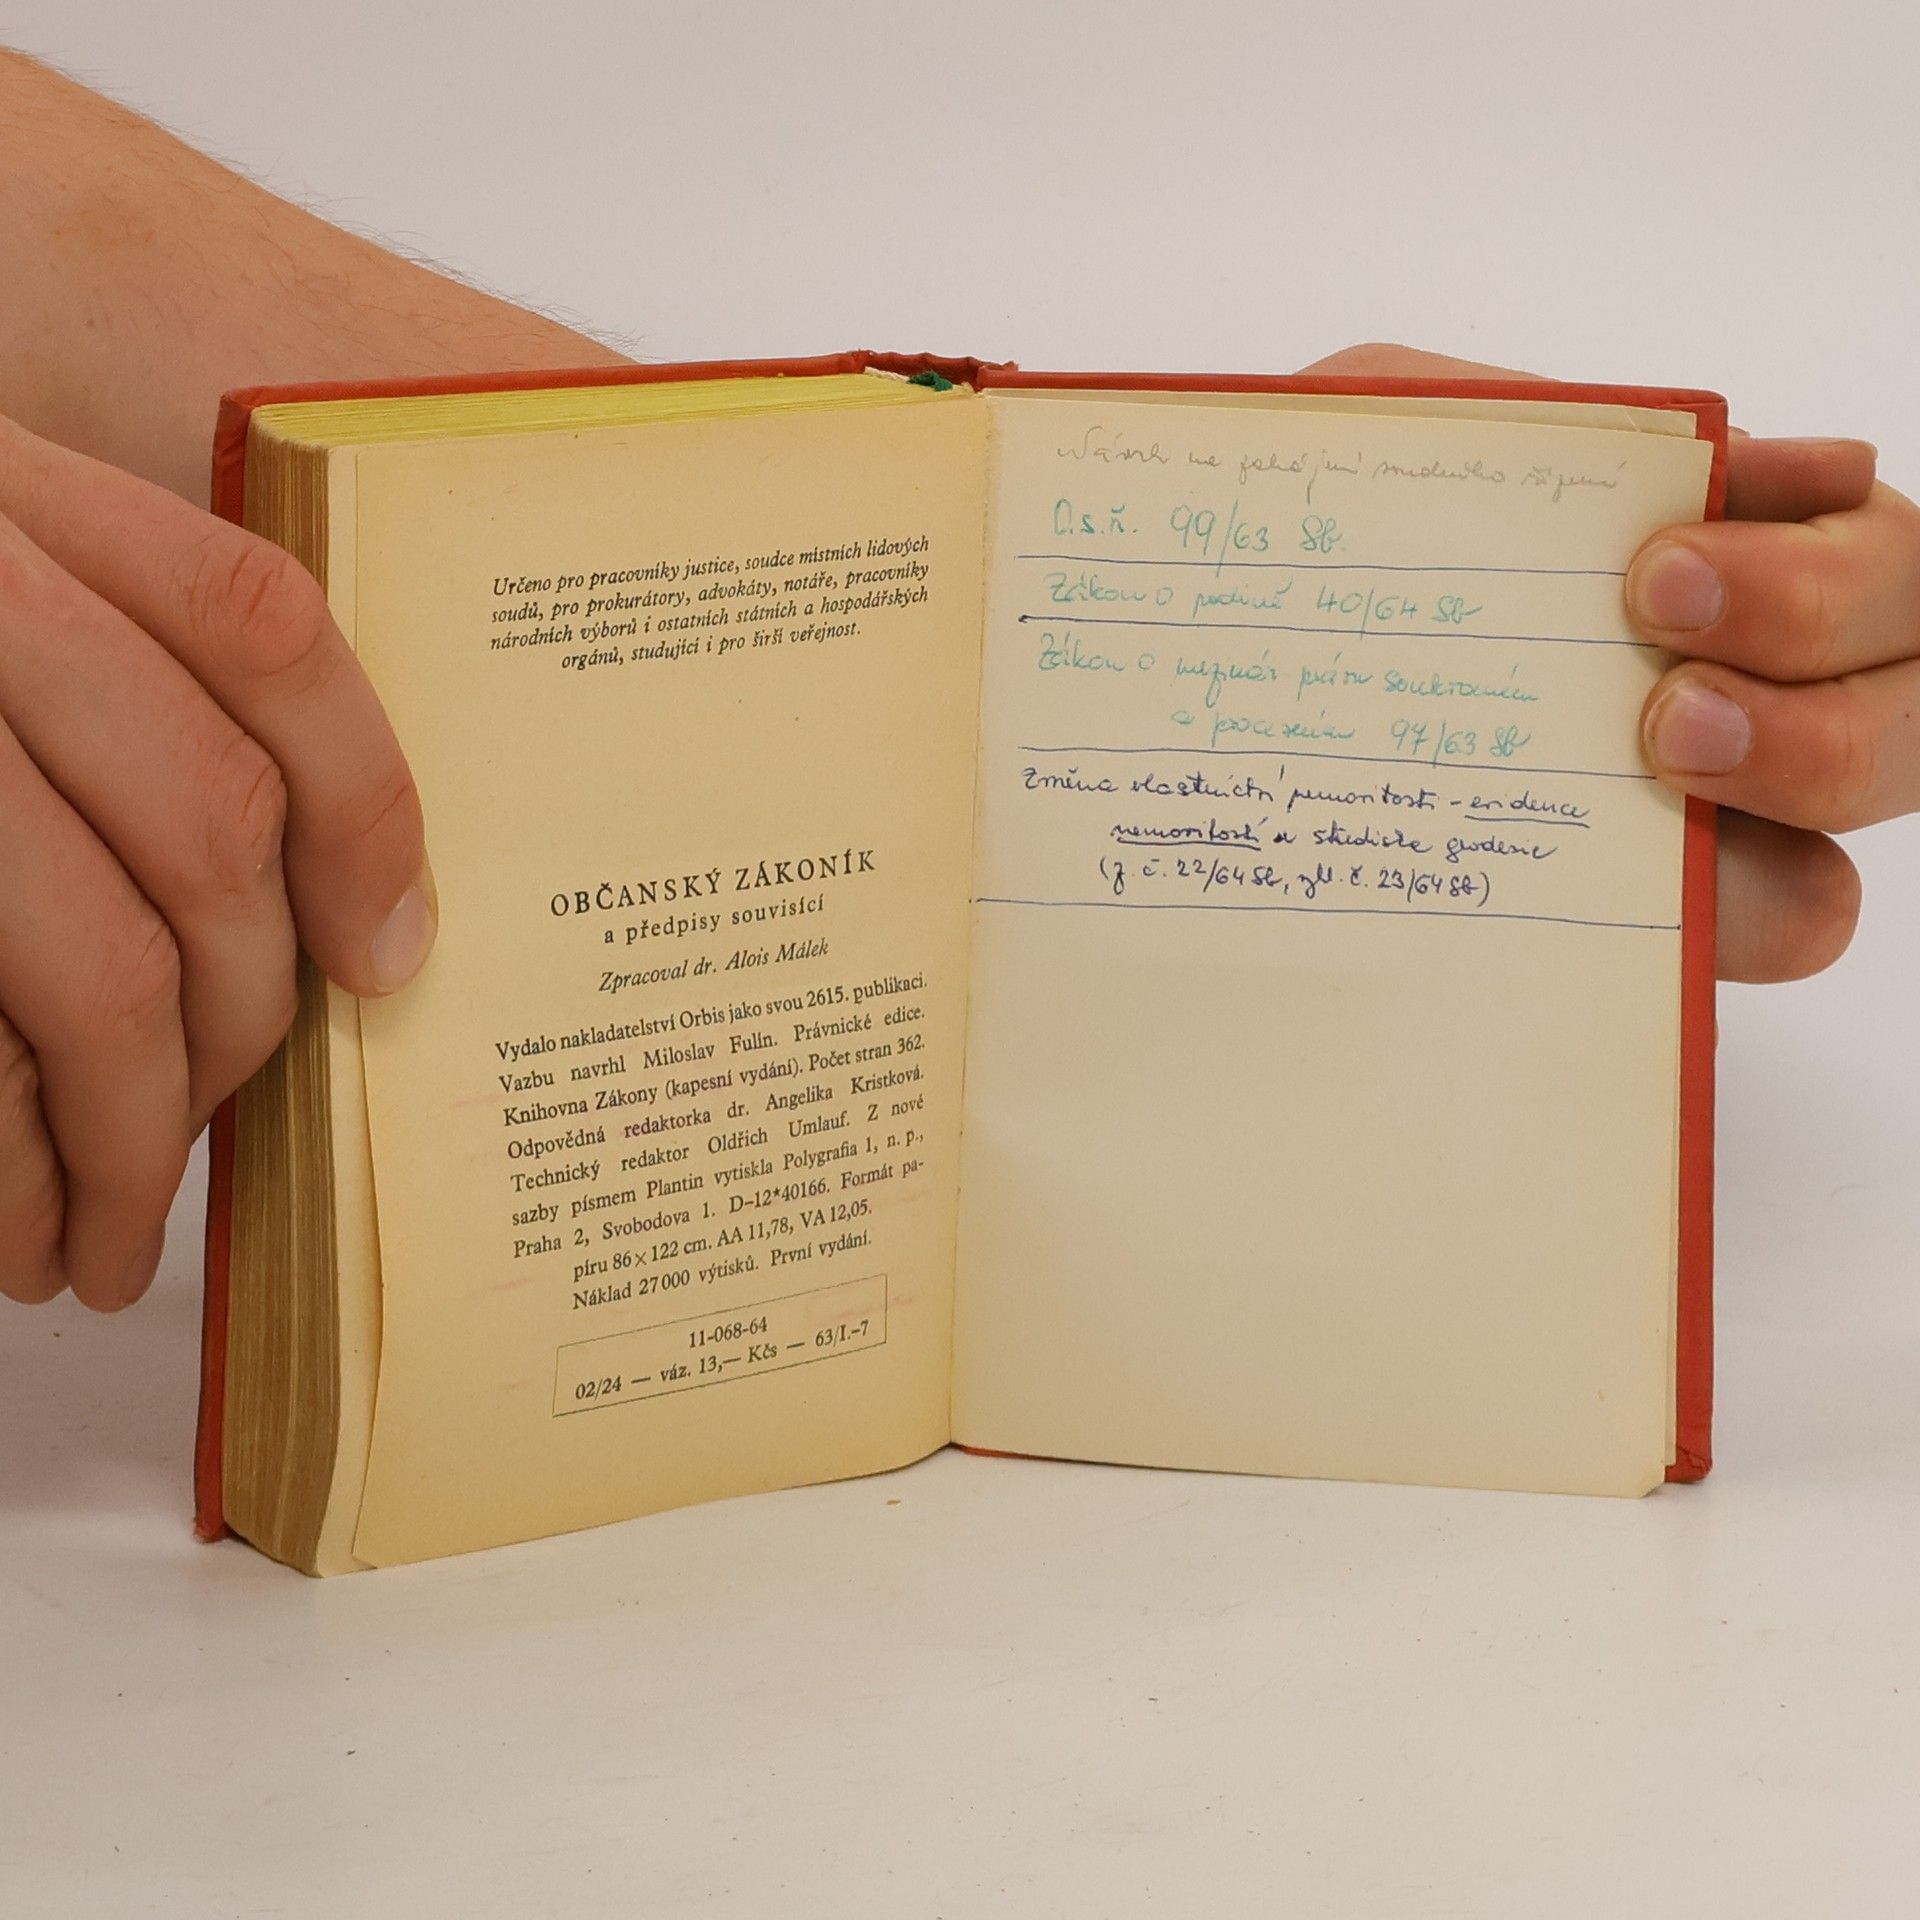 Určeno pro pracovníky justice, soudce místních lidových
soudů, pro prokurátory, advokáty, notáře, pracovníky
národních výborů i ostatních státních a hospodářských
orgánů, studující i pro širší veřejnost.
OBČANSKÝ ZÁKONÍK
a předpisy souvisící
Zpracoval dr. Alois Málek
Vydalo nakladatelství Orbis jako svou 2615. publikaci.
Vazbu navrhl Miloslav Fulín. Právnické edice.
Knihovna Zákony (kapesní vydání). Počet stran 362.
Odpovědná redaktorka dr. Angelika Kristková.
Technický redaktor Oldřich Umlauf. Z nové
sazby písmem Plantin vytiskla Polygrafia 1, n. p.,
Praha 2, Svobodova 1. D-12*40166. Formát pa-
píru 86 × 122 cm. AA 11,78, VA 12,05.
Náklad 27 000 výtisků. První vydání.
11-068-64
02/24 — váz. 13,— Kčs — 63/I.-7
Návrh na zahájení soudního řízení
O.s.ř. 99/63 Sb.
Zákon o rodině 40/64 Sb
Zákon o mezinár právu soukromém
a procesním 97/63 Sb
Změna vlastnictví nemovitosti - evidence
nemovitostí u střediska geodesie
(z. č. 22/64 Sb, vyhl. č. 23/64 Sb)